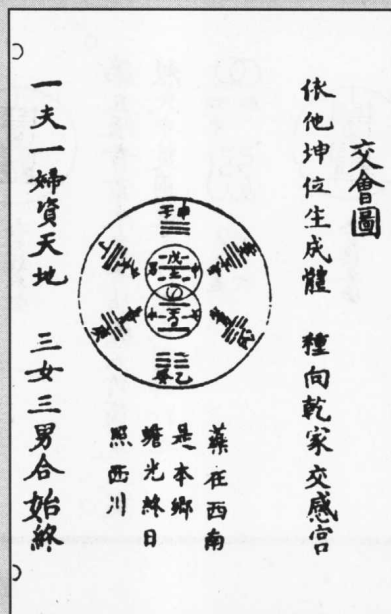 交會圖
依他坤位生成體 種向乾家交感宮
壬甲
戊
乙癸
藥在西南
是本鄉
蟾光終日
照西川
一夫一婦資天地 三女三男合始終